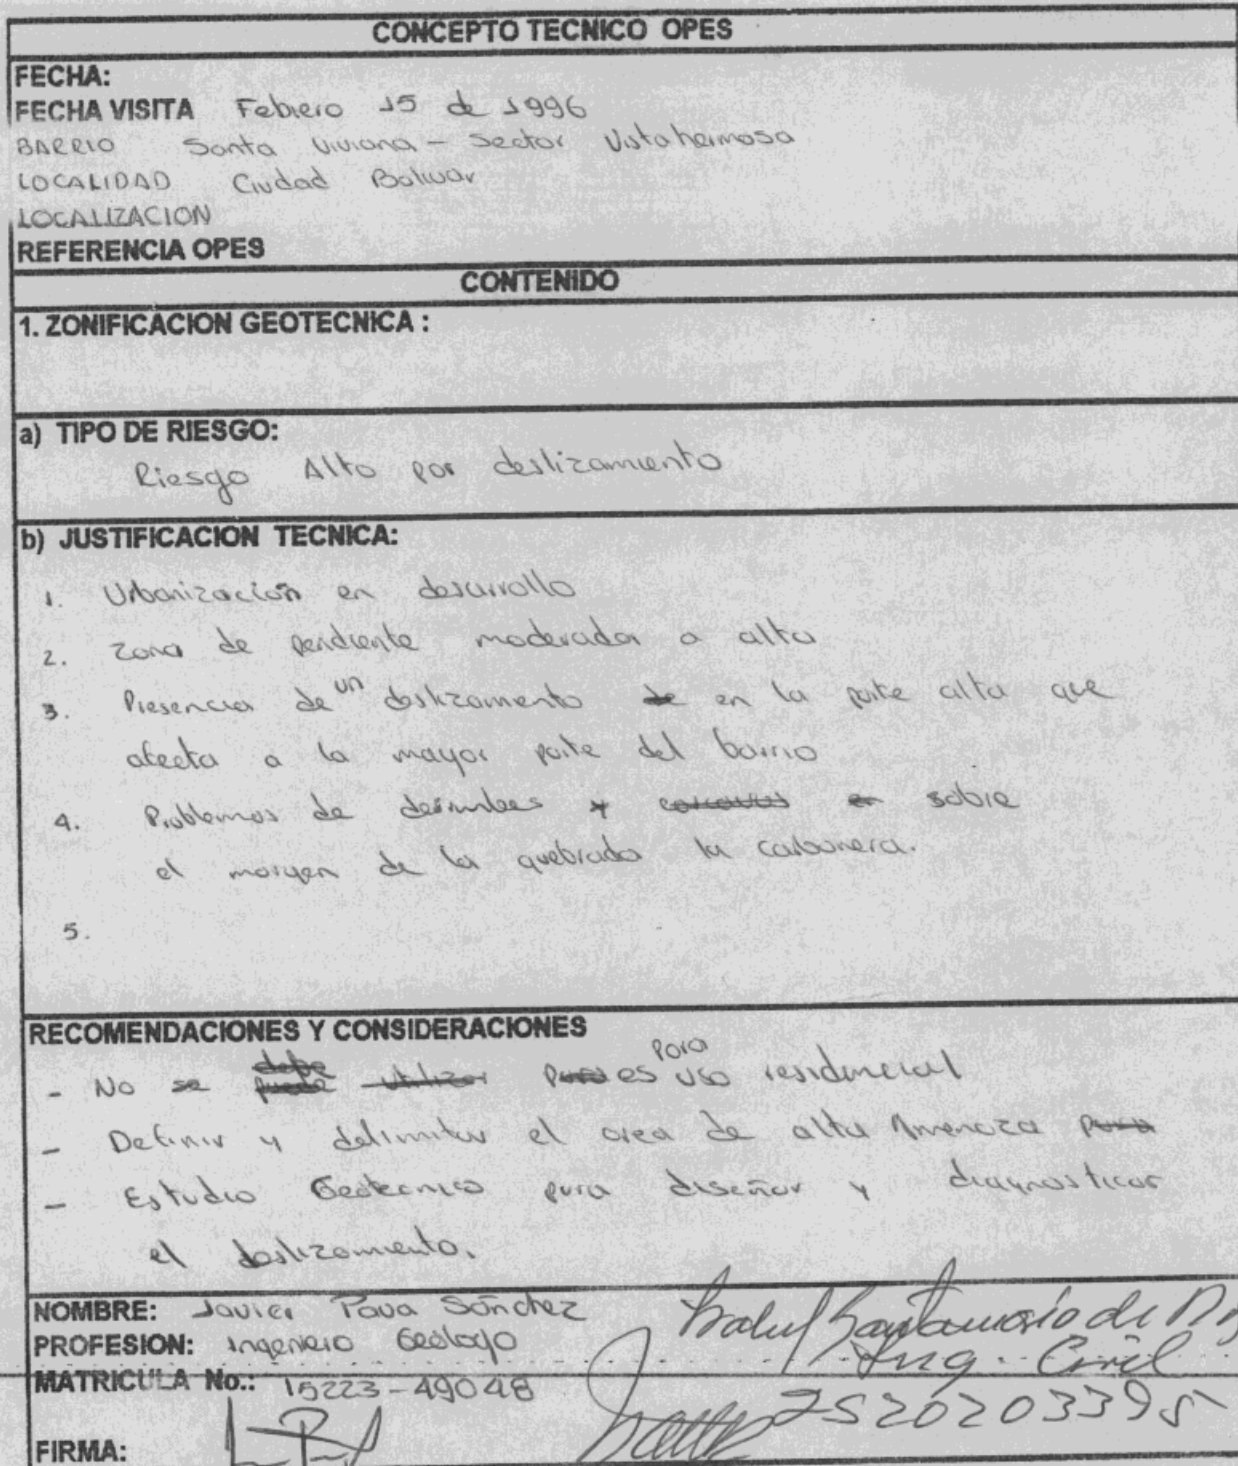 CONCEPTO TECNICO OPES
FECHA:
FECHA VISITA Febrero 15 de 1996
BARRIO Santa Viviana - Sector Vistahermosa
LOCALIDAD Ciudad Bolivar
LOCALIZACION
REFERENCIA OPES
CONTENIDO
1. ZONIFICACION GEOTECNICA :
a) TIPO DE RIESGO:
Riesgo Alto por deslizamiento
b) JUSTIFICACION TECNICA:
1. Urbanización en desarrollo
2. Zona de pendiente moderada a alta
3. Presencia de un deslizamiento de en la parte alta que
afecta a la mayor parte del barrio
4. Problemas de derrumbes y en sobre
el margen de la quebrada la carbonera.
5.
RECOMENDACIONES Y CONSIDERACIONES
debe para
- No se puede utilizar para es uso residencial
- Definir y delimitar el area de alta Amenaza para
- Estudio Geotecnico para diseñar y diagnosticar
el deslizamiento.
NOMBRE: Javier Pava Sánchez
PROFESION: Ingeniero Geólogo Ing. Civil
MATRICULA No.: 15223-49048
FIRMA: